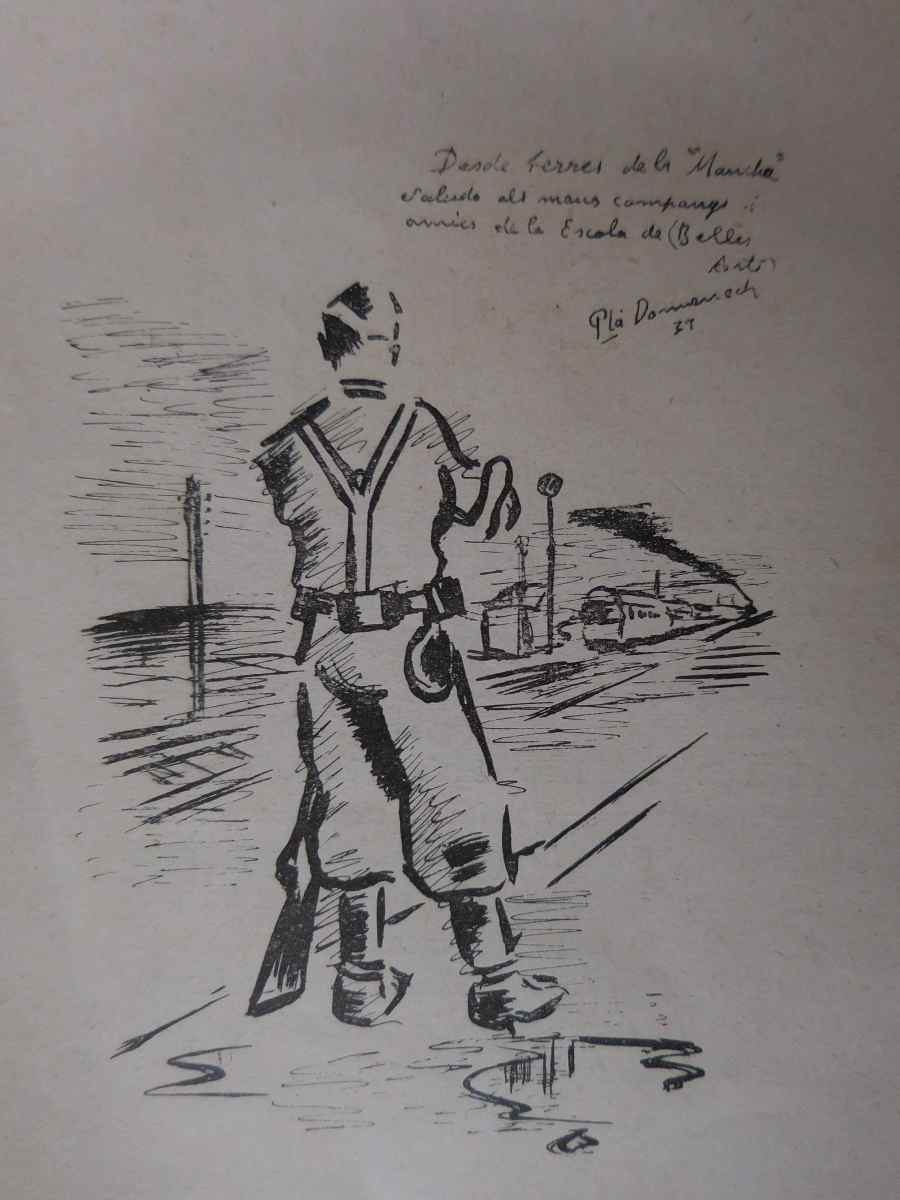 Desde terres de la "Mancha"
saludo als meus companys i
amics de la Escola de (Belles
Arts)
Plà Domenech
37